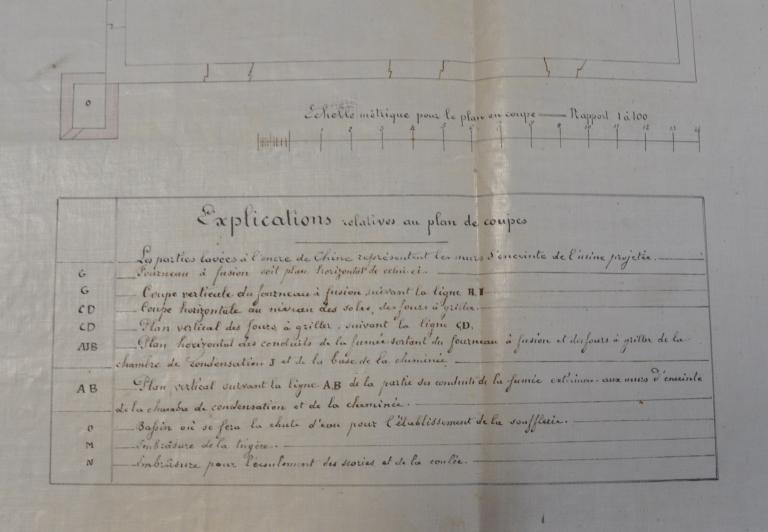 O
Echelle métrique pour le plan en coupe — Rapport 1 à 100
1 2 3 4 5 6 7 8 9 10 11 12 13 14
Explications relatives au plan de coupes
Les parties lavées à l'encre de Chine représentent les murs d'enceinte de l'usine projetée.
G Fourneau à fusion soit plan horizontal de celui-ci.
G Coupe verticale du fourneau à fusion, suivant la ligne
CD Coupe horizontale au niveau des soles, des fours à griller.
CD Plan vertical des fours à griller, suivant la ligne CD.
AJB Plan horizontal des conduits de la fumée sortant du fourneau à fusion et des fours à griller de la
chambre de condensation J et de la base de la cheminée
AB Plan vertical suivant la ligne AB de la partie des conduits de la fumée aux murs d'enceinte
de la chambre de condensation et de la cheminée.
O Bassin où se fera la chute d'eau pour l'établissement de la soufflerie.
M Embrâsure de la tugère.
N Embrâsure pour l'écoulement des scories et de la coulée.